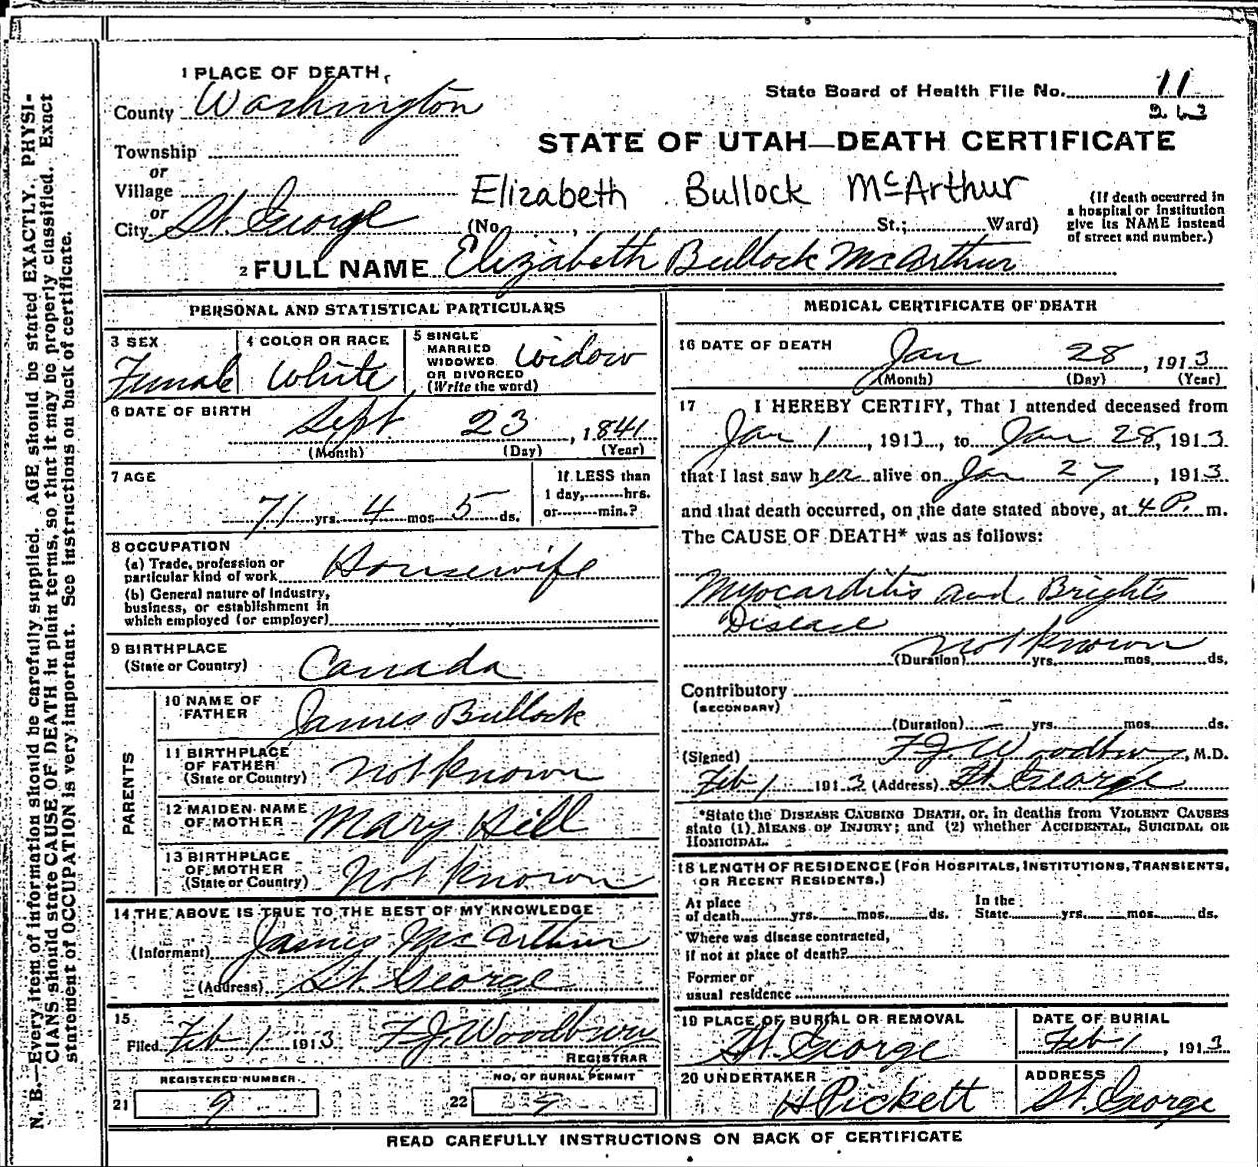 1 PLACE OF DEATH,
County Washington
State Board of Health File No. 11
Township
or
Village
or
City St. George
STATE OF UTAH—DEATH CERTIFICATE
Elizabeth Bullock McArthur
(No. , St.; Ward)
(If death occurred in
a hospital or institution
give its NAME instead
of street and number.)
2 FULL NAME Elizabeth Bullock McArthur
PERSONAL AND STATISTICAL PARTICULARS
3 SEX
Female
4 COLOR OR RACE
White
5 SINGLE
MARRIED
WIDOWED
OR DIVORCED
(Write the word)
Widow
6 DATE OF BIRTH
Sept 23, 1841
(Month) (Day) (Year)
7 AGE
71 yrs. 4 mos 5 ds.
If LESS than
1 day, hrs.
or min.?
8 OCCUPATION
(a) Trade, profession or
particular kind of work Housewife
(b) General nature of Industry,
business, or establishment in
which employed (or employer)
9 BIRTHPLACE
(State or Country) Canada
PARENTS
10 NAME OF
FATHER James Bullock
11 BIRTHPLACE
OF FATHER
(State or Country) not known
12 MAIDEN NAME
OF MOTHER Mary Hill
13 BIRTHPLACE
OF MOTHER
(State or Country) Not Known
14 THE ABOVE IS TRUE TO THE BEST OF MY KNOWLEDGE
(Informant) James McArthur
(Address) St. George
15
Filed Feb 1 1913 F.J. Woodbury
REGISTRAR
REGISTERED NUMBER
21 9
NO. OF BURIAL PERMIT
22 9
MEDICAL CERTIFICATE OF DEATH
16 DATE OF DEATH
Jan 28, 1913
(Month) (Day) (Year)
17 I HEREBY CERTIFY, That I attended deceased from
Jan 1, 1913, to Jan 28, 1913
that I last saw her alive on Jan 27, 1913
and that death occurred, on the date stated above, at 4 P. m.
The CAUSE OF DEATH* was as follows:
Myocarditis and Brights
Disease
not known
(Duration) yrs. mos. ds.
Contributory
(SECONDARY)
(Duration) yrs. mos. ds.
(Signed) F.J. Woodbury, M.D.
Feb 1 1913 (Address) St. George
*State the DISEASE CAUSING DEATH, or, in deaths from VIOLENT CAUSES
state (1) MEANS OF INJURY; and (2) whether ACCIDENTAL, SUICIDAL OR
HOMICIDAL.
18 LENGTH OF RESIDENCE (FOR HOSPITALS, INSTITUTIONS, TRANSIENTS,
OR RECENT RESIDENTS.)
At place
of death yrs. mos. ds.
In the
State yrs. mos. ds.
Where was disease contracted,
if not at place of death?
Former or
usual residence
19 PLACE OF BURIAL OR REMOVAL
St. George
DATE OF BURIAL
Feb 1, 1913
20 UNDERTAKER
H Pickett
ADDRESS
St. George
READ CAREFULLY INSTRUCTIONS ON BACK OF CERTIFICATE
N. B.—Every item of information should be carefully supplied. AGE should be stated EXACTLY. PHYSI-
CIANS should state CAUSE OF DEATH in plain terms, so that it may be properly classified. Exact
statement of OCCUPATION is very important. See instructions on back of certificate.